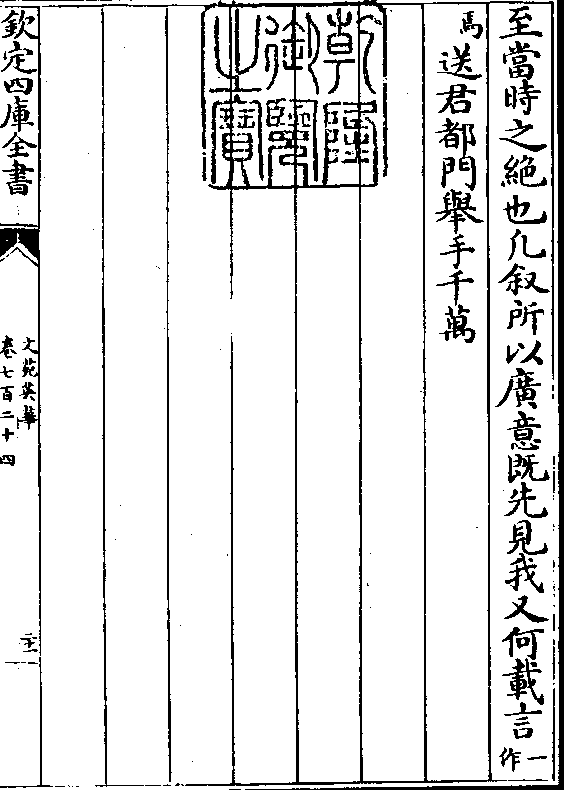 至當時之絶也凡叙所以廣意既先見我又何載言一作
焉送君都門舉手千萬
乾隆御覽之寶
欽定四庫全書
文苑英華
卷七百二十四